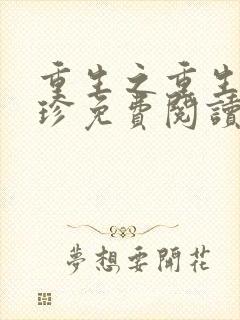 重生之重生
珍免費閱讀
夢想要開花